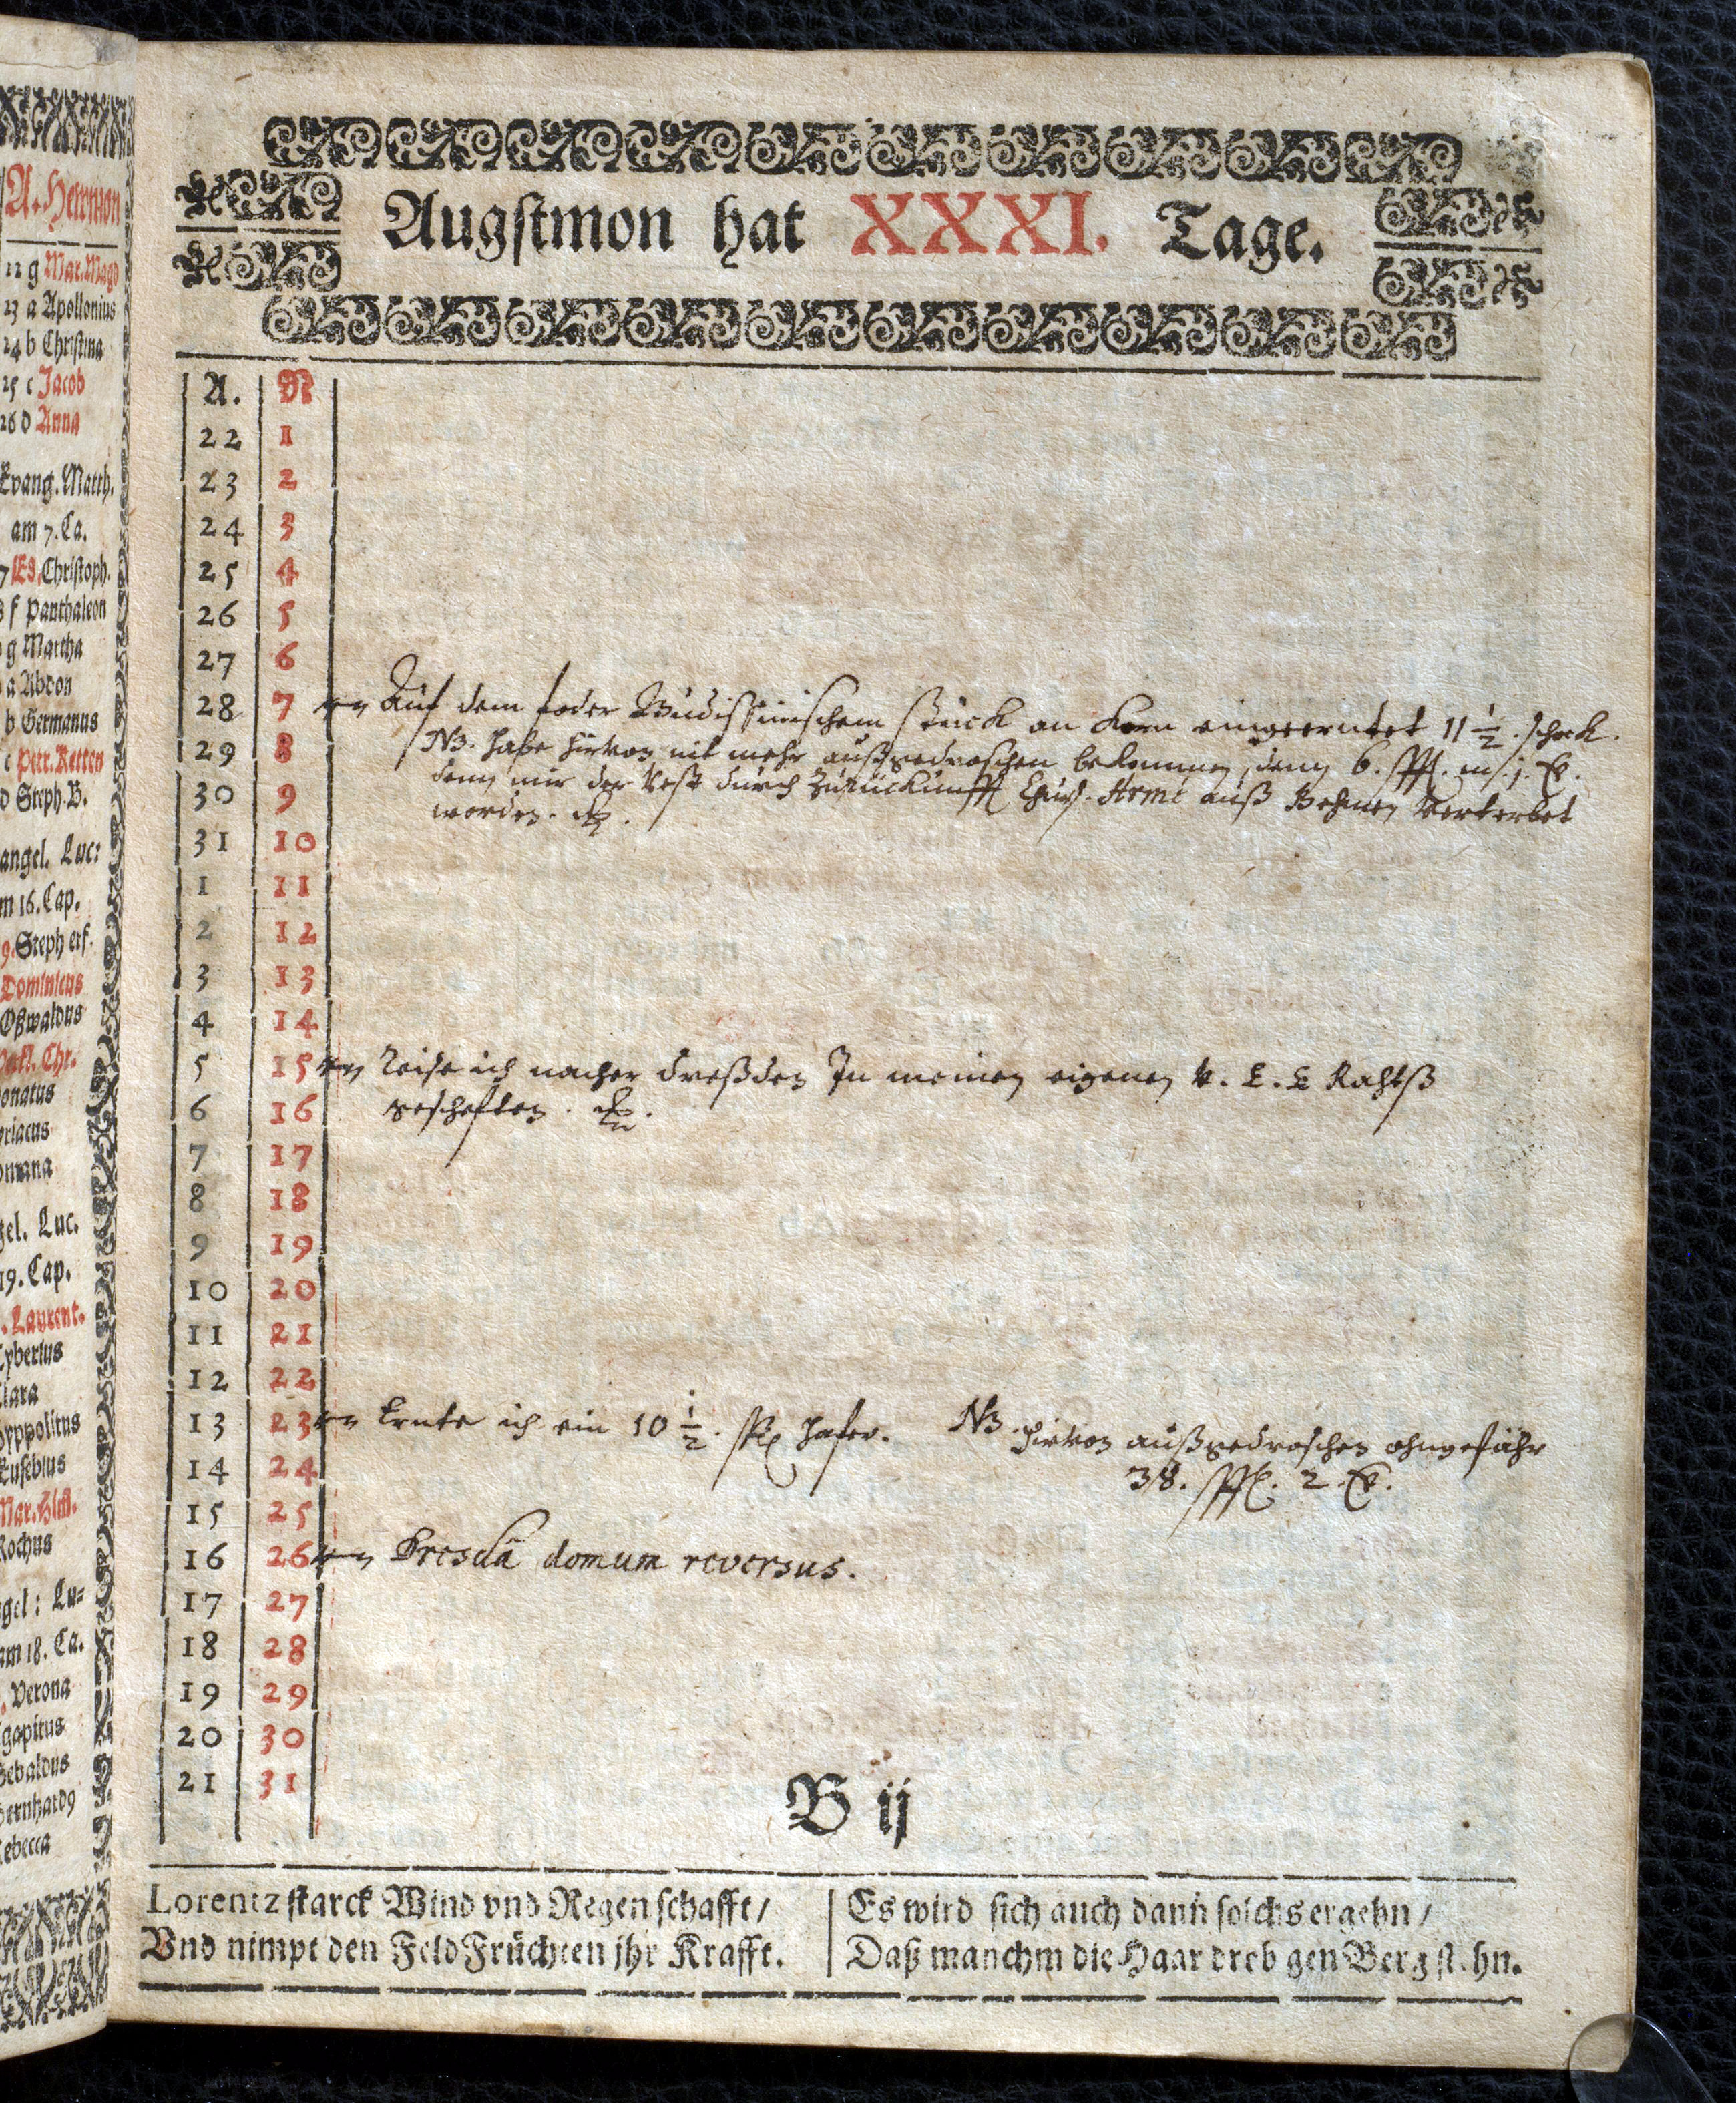 A. Hewmon
22 g Mar. Magd
23 a Apollonius
24 b Christina
25 c Jacob
26 d Anna
Evang. Matth.
am 7. Ca.
7 E 8. Christoph.
f Panthaleon
g Martha
a Abdon
b Germanus
c Petr. Ketten
d Steph. B.
angel. Luc:
m 16. Cap.
9. Steph erf.
Dominicus
Oßwaldus
Verkl. Chr.
onatus
yriacus
omana
gel. Luc.
19. Cap.
. Laurent.
Tyberius
Clara
Hyppolitus
Eusebius
Mar. Him.
Rochus
gel: Lu=
am 18. Ca.
. Verona
gapitus
Sebaldus
Bernhard9
Rebecca
Augstmon hat XXXI. Tage.
A. N
22 1
23 2
24 3
25 4
26 5
27 6
28 7 Auf dem foder Budissinischem stück an Korn eingeerntet 11 1/2. schock.
29 8 NB. habe hirvon nit mehr außgedroschen bekommen, denn 6. schfl.
30 9 denn mir der Rest durch Zurückunfft Churf. Arme auß Behmen verterbet
worden.
31 10
1 11
2 12
3 13
4 14
5 15 Reise ich nacher Dreßden In meinen eigenen v. E. E Rahtß
6 16 geschefften.
7 17
8 18
9 19
10 20
11 21
12 22
13 23 Ernte ich ein 10 1/2. ßß hafer. NB. hirvon außgedroschen ohngefähr
14 24 38. schfl. 2.
15 25
16 26 Dresdâ domum reversus.
17 27
18 28
19 29
20 30
21 31
B ij
Lorentz starck Wind vnd Regen schafft /
Vnd nimpt den Feld Früchten jhr Krafft.
Es wird sich auch dann solchs ergehn /
Daß manchm die Haar dreb gen Berg st hn.